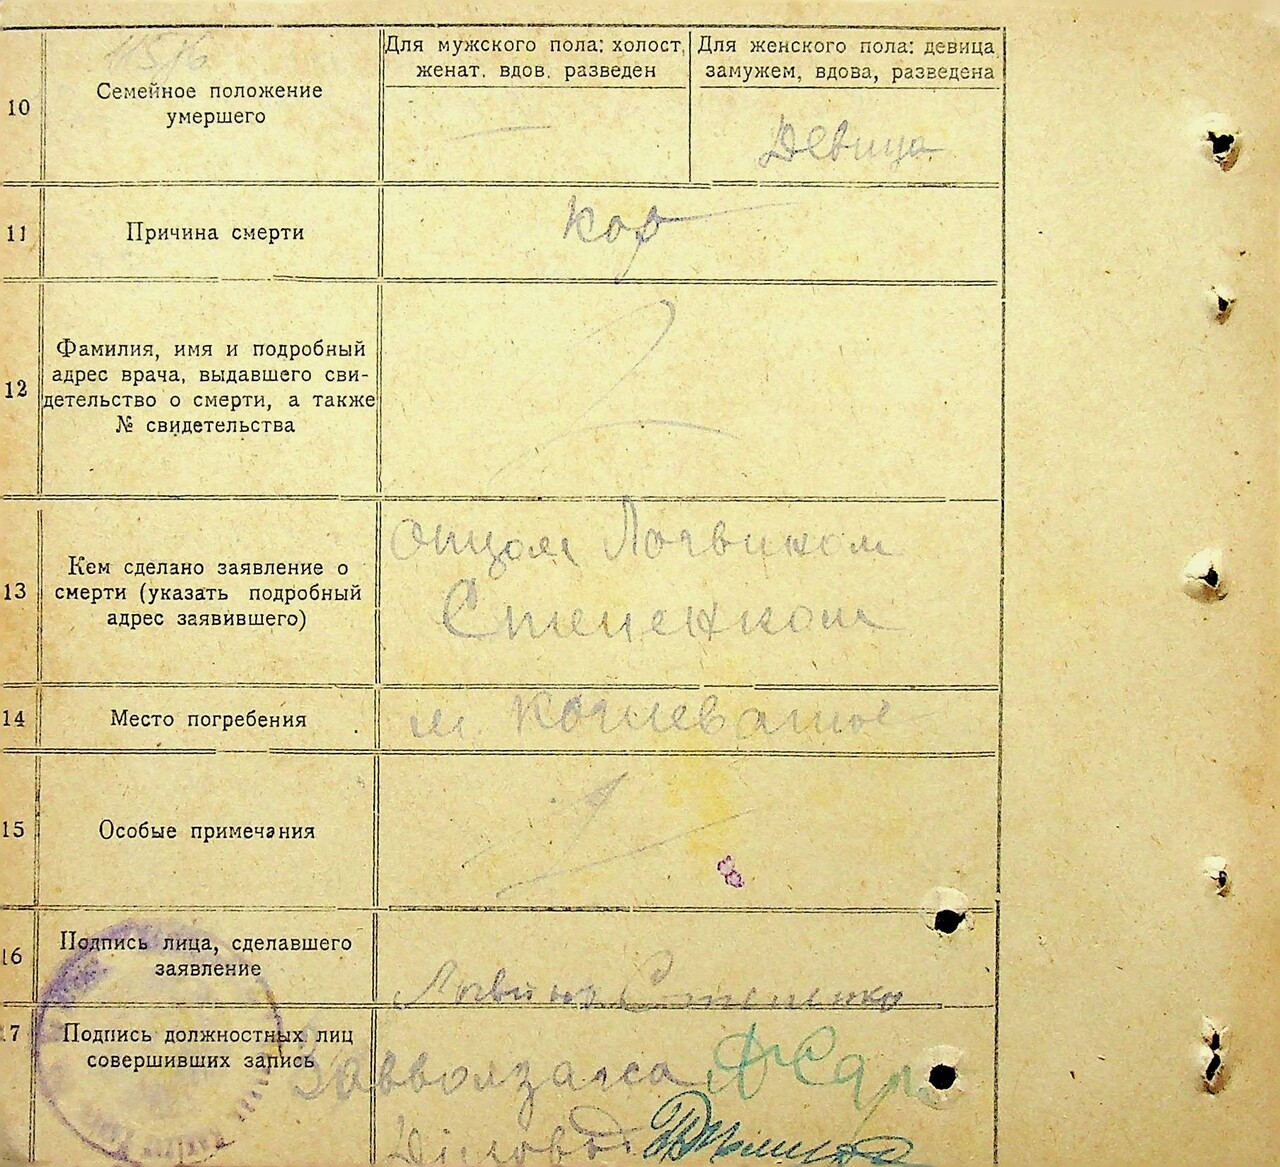 10
Семейное положение
умершего
Для мужского пола: холост,
женат. вдов. разведен
Для женского пола: девица
замужем, вдова, разведена
Девица
11
Причина смерти
Кор
12
Фамилия, имя и подробный
адрес врача, выдавшего сви-
детельство о смерти, а также
№ свидетельства
13
Кем сделано заявление о
смерти (указать подробный
адрес заявившего)
Отцом Логвином
Степенком
14
Место погребения
м. Кошеватое
15
Особые примечания
16
Подпись лица, сделавшего
заявление
Логвин Степенко
17
Подпись должностных лиц
совершивших запись
Завволзагса
Діловод